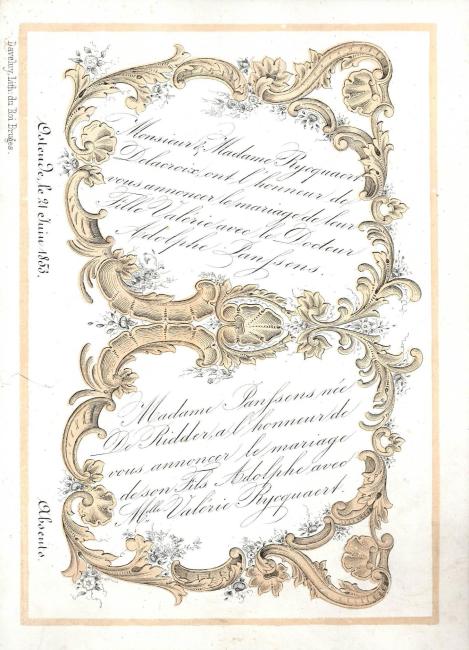 Monsieur & Madame Rycquaert
Delacroix, ont l'honneur de
vous annoncer le mariage de leur
Fille Valérie avec Mr. le Docteur
Adolphe Janssens.
Madame Janssens née
De Ridder, a l'honneur de
vous annoncer le mariage
de son Fils Adolphe avec
Mlle. Valérie Rycquaert.
Ostende, le 21 Juin 1853.
Absents.
Daveluy, Lith. du Roi Bruges.